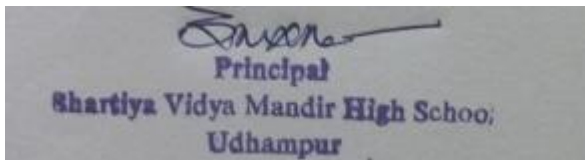 Principal
Bhartiya Vidya Mandir High School
Udhampur